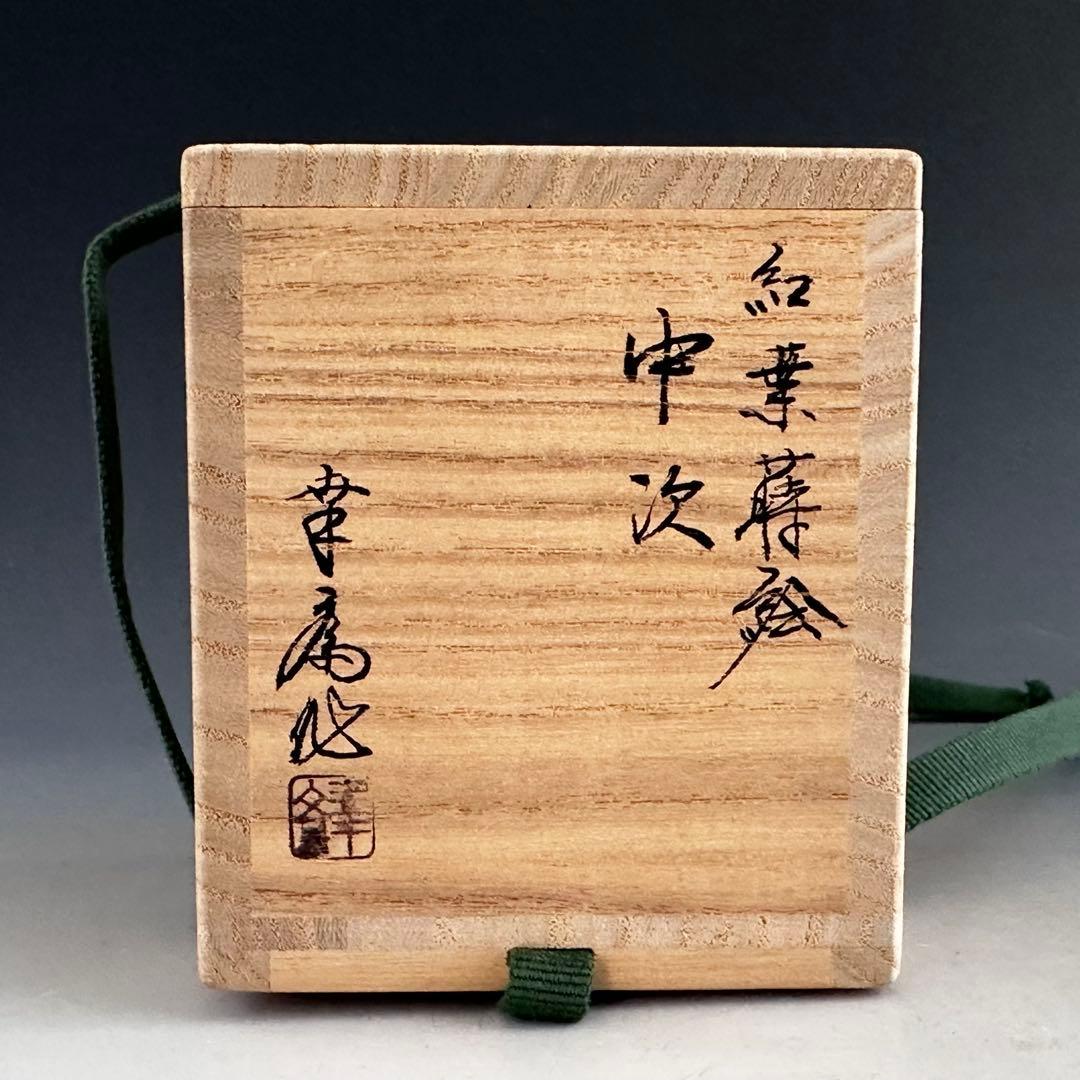 紅葉蒔絵
中次
作